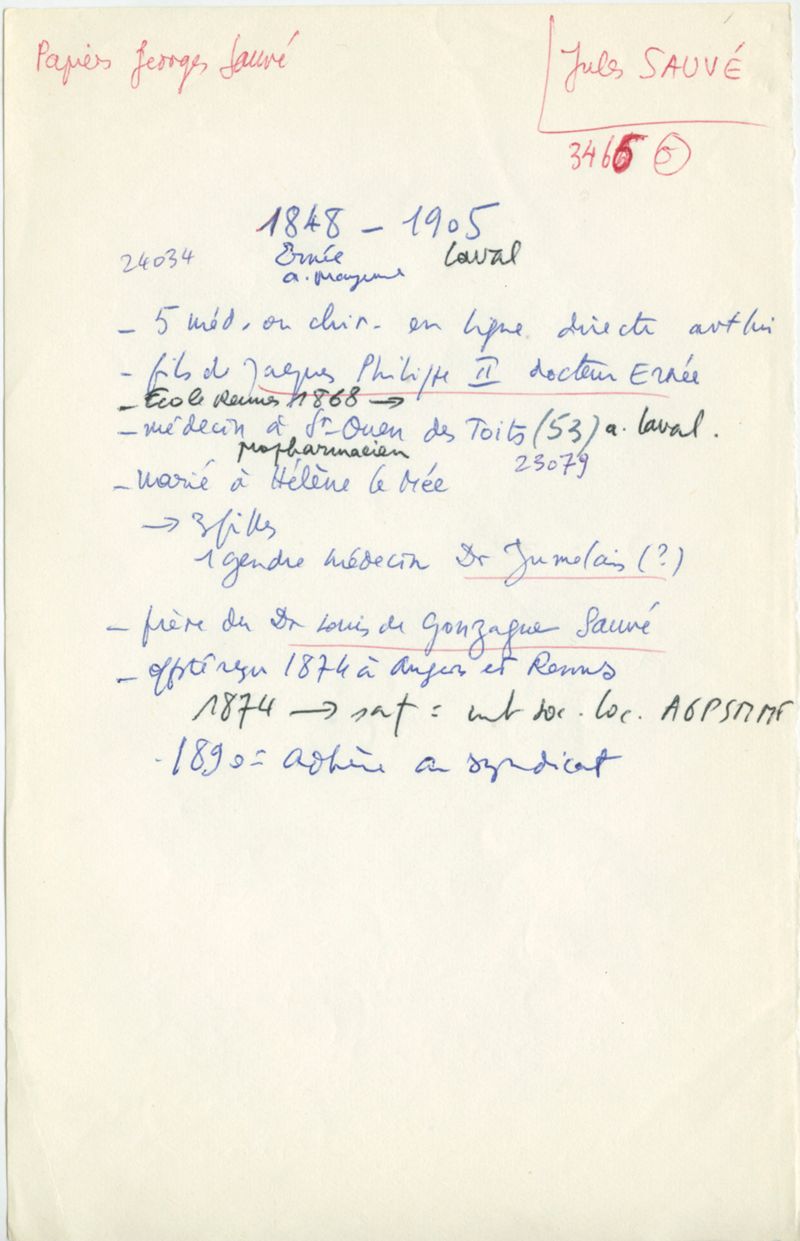 Papiers Georges Sauvé
Jules SAUVÉ
3466 5
1848 – 1905
24034 Ernée Laval
a. Mayenne
– 5 méd. ou chir. en ligne directe
– fils de Jacques Philippe II docteur Ernée
– École Rennes 1868 →
– médecin à St-Ouen des Toits (53) a. Laval.
propharmacien 23079
– Marié à Hélène le Mée
→ 3 filles
1 gendre médecin Dr Jumelais (?)
– frère du Dr Louis de Gonzague Sauvé
– reçu 1874 à Angers et Rennes
1874 → soc. loc. AGPSMMF
1890 = Adhère au syndicat